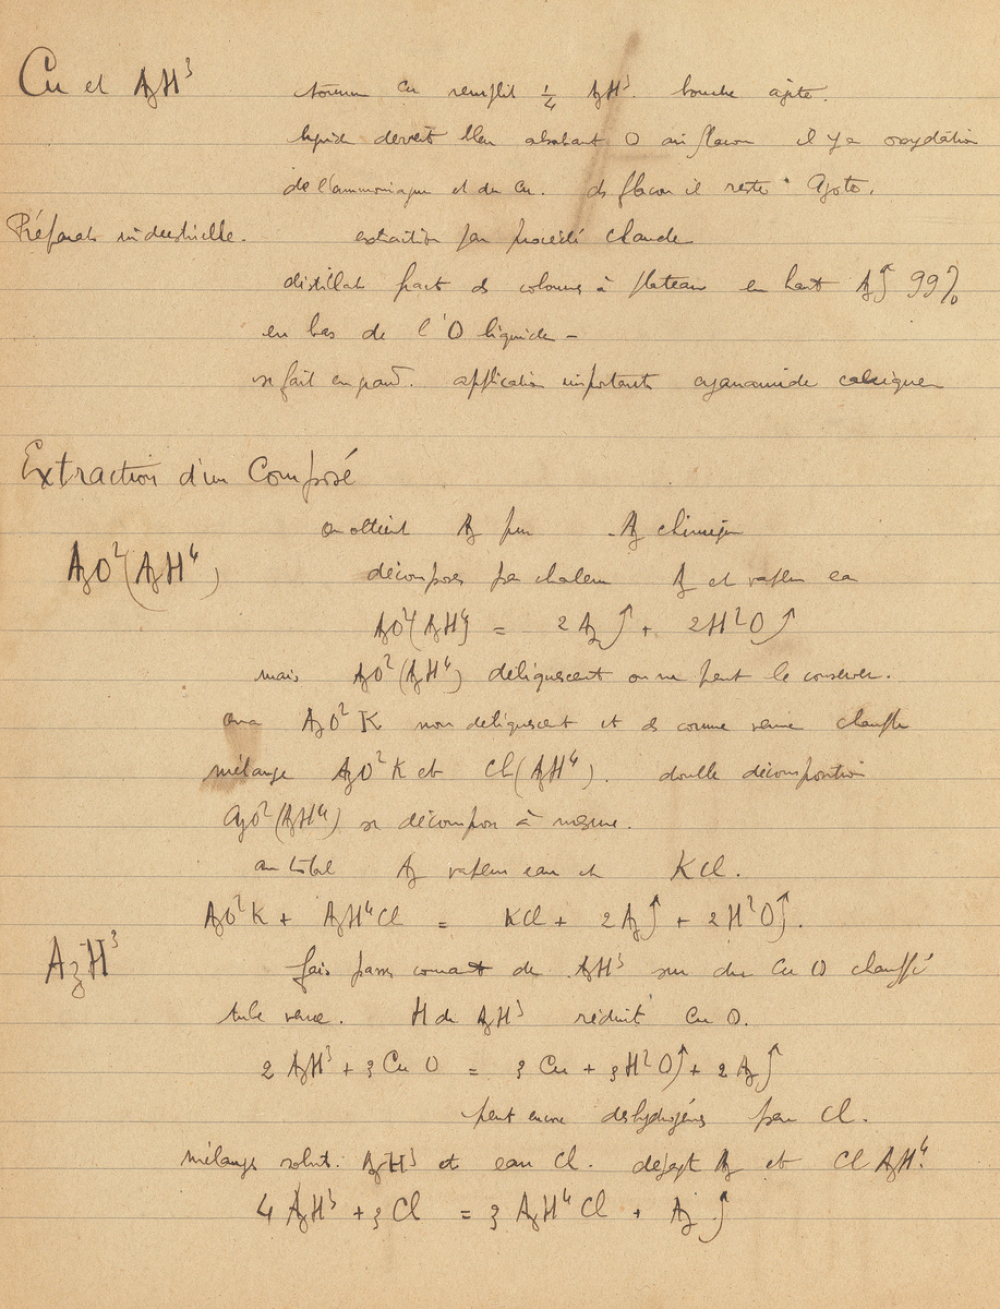 Cu et AzH³ tournure Cu remplit ¼ AzH³. bouche agite.
liquide devient bleu absorbant O au flacon il y a oxydation
de l'ammoniaque et du Cu. ds flacon il reste Azote.
Préparat industrielle. extraction par procédé Claude
distillat fract ds colonne à plateau en haut Az↑ 99%
en bas de l'O liquide -
se fait en grand. application importante cyanamide calcique
Extraction d'un Composé
on obtient Az pur Az chimique
AzO²(AzH⁴) décomposé par chaleur Az et vapeur eau
AzO²(AzH⁴) = 2 Az↑ + 2H²O↑
mais AzO²(AzH⁴) déliquescent on ne peut le conserver.
on a AzO²K non deliquescent et ds cornue verre chauffe
mélange AzO²K et Cl(AzH⁴). double décomposition
AzO²(AzH⁴) se décompose à mesure.
au total Az vapeur eau et KCl.
AzO²K + AzH⁴Cl = KCl + 2 Az↑ + 2H²O↑.
AzH³ fais passer courant de AzH³ sur du CuO chauffé
tube verre. H de AzH³ réduit CuO.
2 AzH³ + 3CuO = 3 Cu + 3H²O↑ + 2 Az↑
peut encore deshydrogéné par Cl.
mélange solut. AzH³ et eau Cl. dégagt Az et Cl AzH⁴.
4 AzH³ + 3Cl = 3 AzH⁴Cl + Az↑